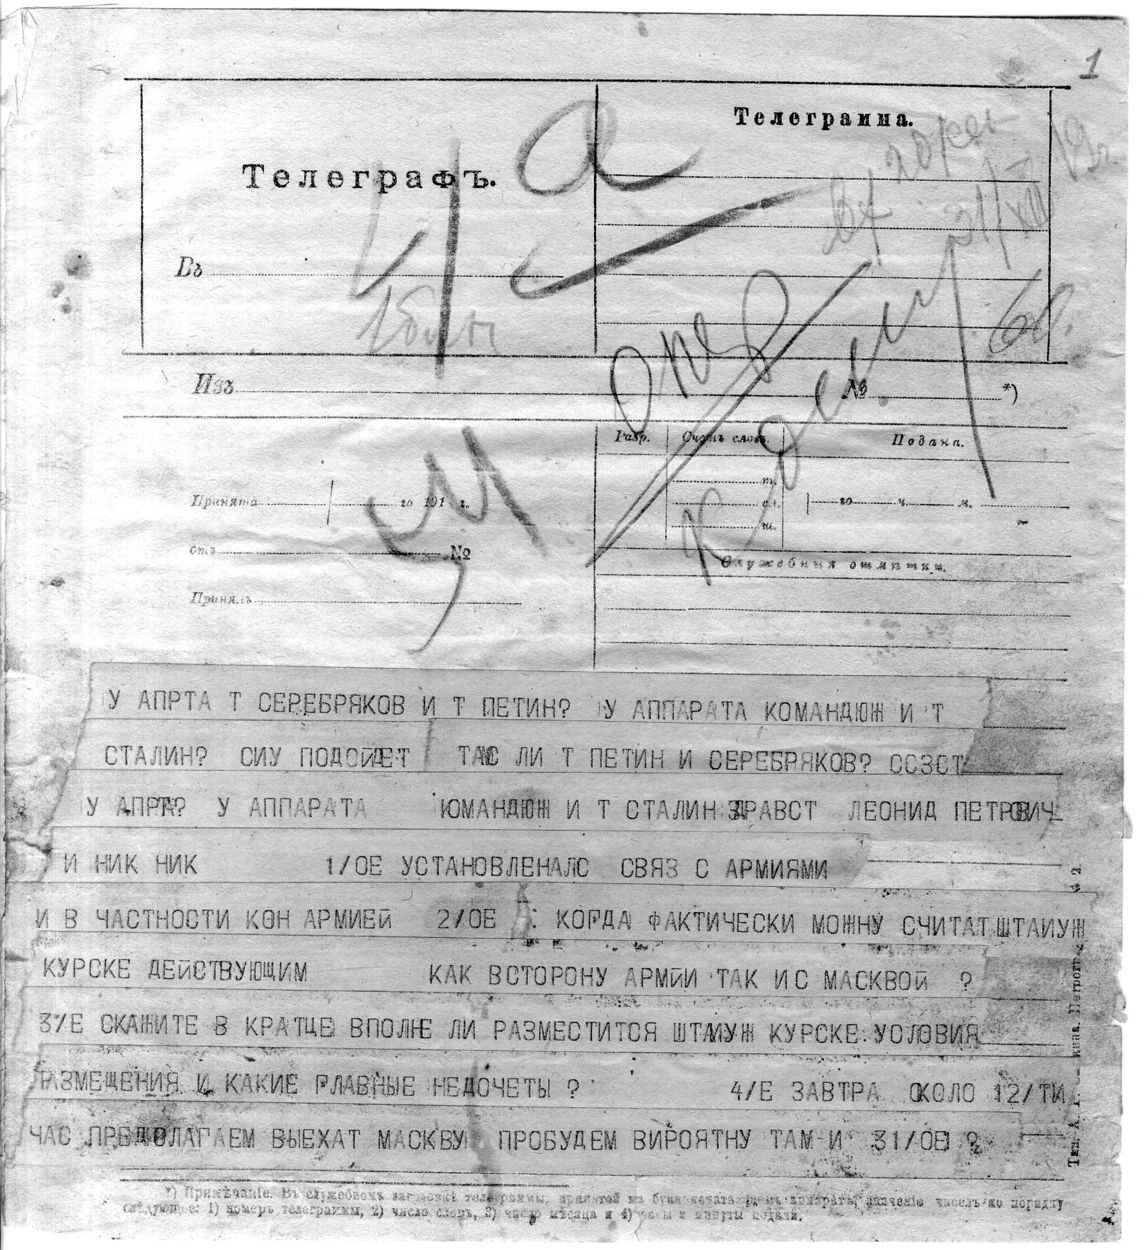 1
Телеграмма.
Телеграфъ.
Въ
Изъ
№ *)
Разр. Счетъ словъ. Подана.
Принята го 191 г.
го ч. м.
отъ №
Служебныя отмѣтки.
Принялъ
У АПРТА Т СЕРЕБРЯКОВ И Т ПЕТИН? У АППАРАТА КОМАНДЮЖ И Т
СТАЛИН? СИУ ПОДОЙДЕТ ТАС ЛИ Т ПЕТИН И СЕРЕБРЯКОВ? ССЗСТ
У АПРТА? У АППАРАТА ЮМАНДЮЖ И Т СТАЛИН ЗДРАВСТ ЛЕОНИД ПЕТРОВИЧ
И НИК НИК 1/ОЕ УСТАНОВЛЕНАЛС СВЯЗ С АРМИЯМИ
И В ЧАСТНОСТИ КОН АРМИЕЙ 2/ОЕ : КОГДА ФАКТИЧЕСКИ МОЖНУ СЧИТАТ ШТАИУЖ
КУРСКЕ ДЕЙСТВУЮЩИМ КАК ВСТОРОНУ АРМЙИ ТАК ИС МАСКВОЙ ?
3/Е СКАЖИТЕ В КРАТЦЕ ВПОЛНЕ ЛИ РАЗМЕСТИТСЯ ШТАИУЖ КУРСКЕ УСЛОВИЯ
РАЗМЕЩЕНИЯ И КАКИЕ ГЛАВНЫЕ НЕДОЧЕТЫ ? 4/Е ЗАВТРА ОКОЛО 12/ТИ
ЧАС ПРЕДПОЛАГАЕМ ВЫЕХАТ МАСКВУ ПРОБУДЕМ ВИРОЯТНУ ТАМ И 31/ОЕ ?
*) Примѣчаніе. Въ служебномъ заголовкѣ телеграммы, принятой на буквопечатающемъ аппаратѣ, значеніе чиселъ по порядку
слѣдующее: 1) номеръ телеграммы, 2) число словъ, 3) число мѣсяца и 4) часы и минуты подачи.